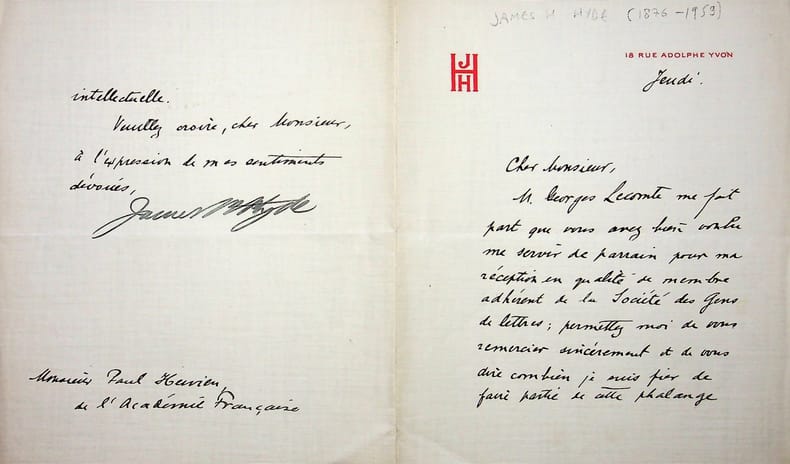 JAMES H HYDE (1876-1959)
JHH
18 RUE ADOLPHE YVON
Jeudi.
Cher Monsieur,
M. Georges Lecomte me fait
part que vous avez bien voulu
me servir de parrain pour ma
réception en qualité de membre
adhérent de la Société des Gens
de lettres; permettez moi de vous
remercier sincèrement et de vous
dire combien je suis fier de
faire partie de cette phalange
intellectuelle.
Veuillez croire, cher Monsieur,
à l'expression de mes sentiments
dévoués,
James H Hyde
Monsieur Paul Hervieu,
de l'Académie Française